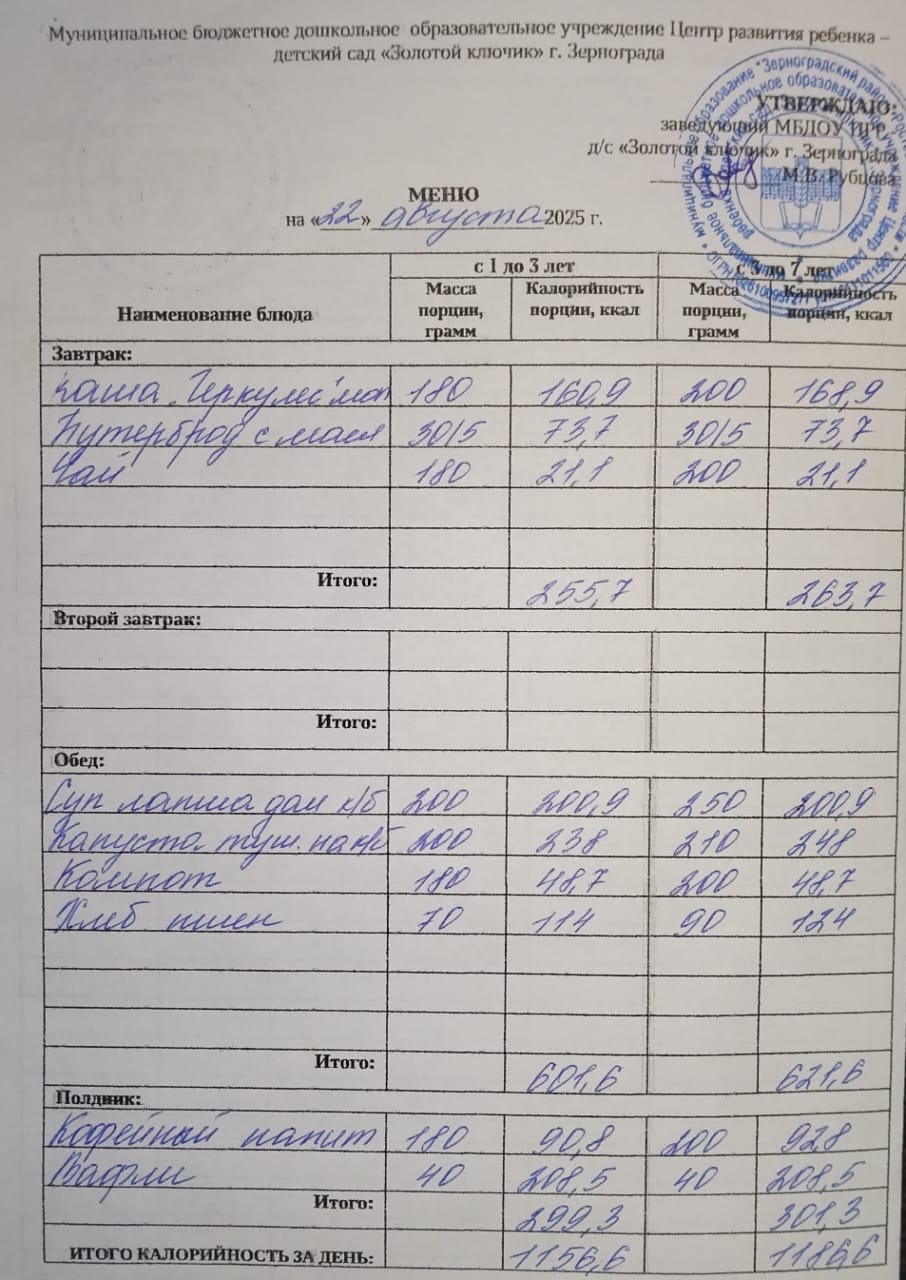 Муниципальное бюджетное дошкольное образовательное учреждение Центр развития ребенка –
детский сад «Золотой ключик» г. Зернограда
УТВЕРЖДАЮ:
заведующий МБДОУ ЦРР -
д/с «Золотой ключик» г. Зернограда
М.В. Рубцова
МЕНЮ
на «22» августа 2025 г.
Наименование блюда с 1 до 3 лет с 3 до 7 лет
Масса порции, грамм Калорийность порции, ккал Масса порции, грамм Калорийность порции, ккал
Завтрак:
Каша "Геркулес" мол 180 160,9 200 168,9
Бутерброд с масл 30/5 73,7 30/5 73,7
Чай 180 21,1 200 21,1
Итого: 255,7 263,7
Второй завтрак:
Итого:
Обед:
Суп лапша дом к/б 200 200,9 250 200,9
Капуста туш. на к/б 200 238 210 248
Компот 180 48,7 200 48,7
Хлеб пшен 70 114 90 124
Итого: 601,6 621,6
Полдник:
Кофейный напит 180 90,8 200 92,8
Вафли 40 208,5 40 208,5
Итого: 299,3 301,3
ИТОГО КАЛОРИЙНОСТЬ ЗА ДЕНЬ: 1156,6 1186,6